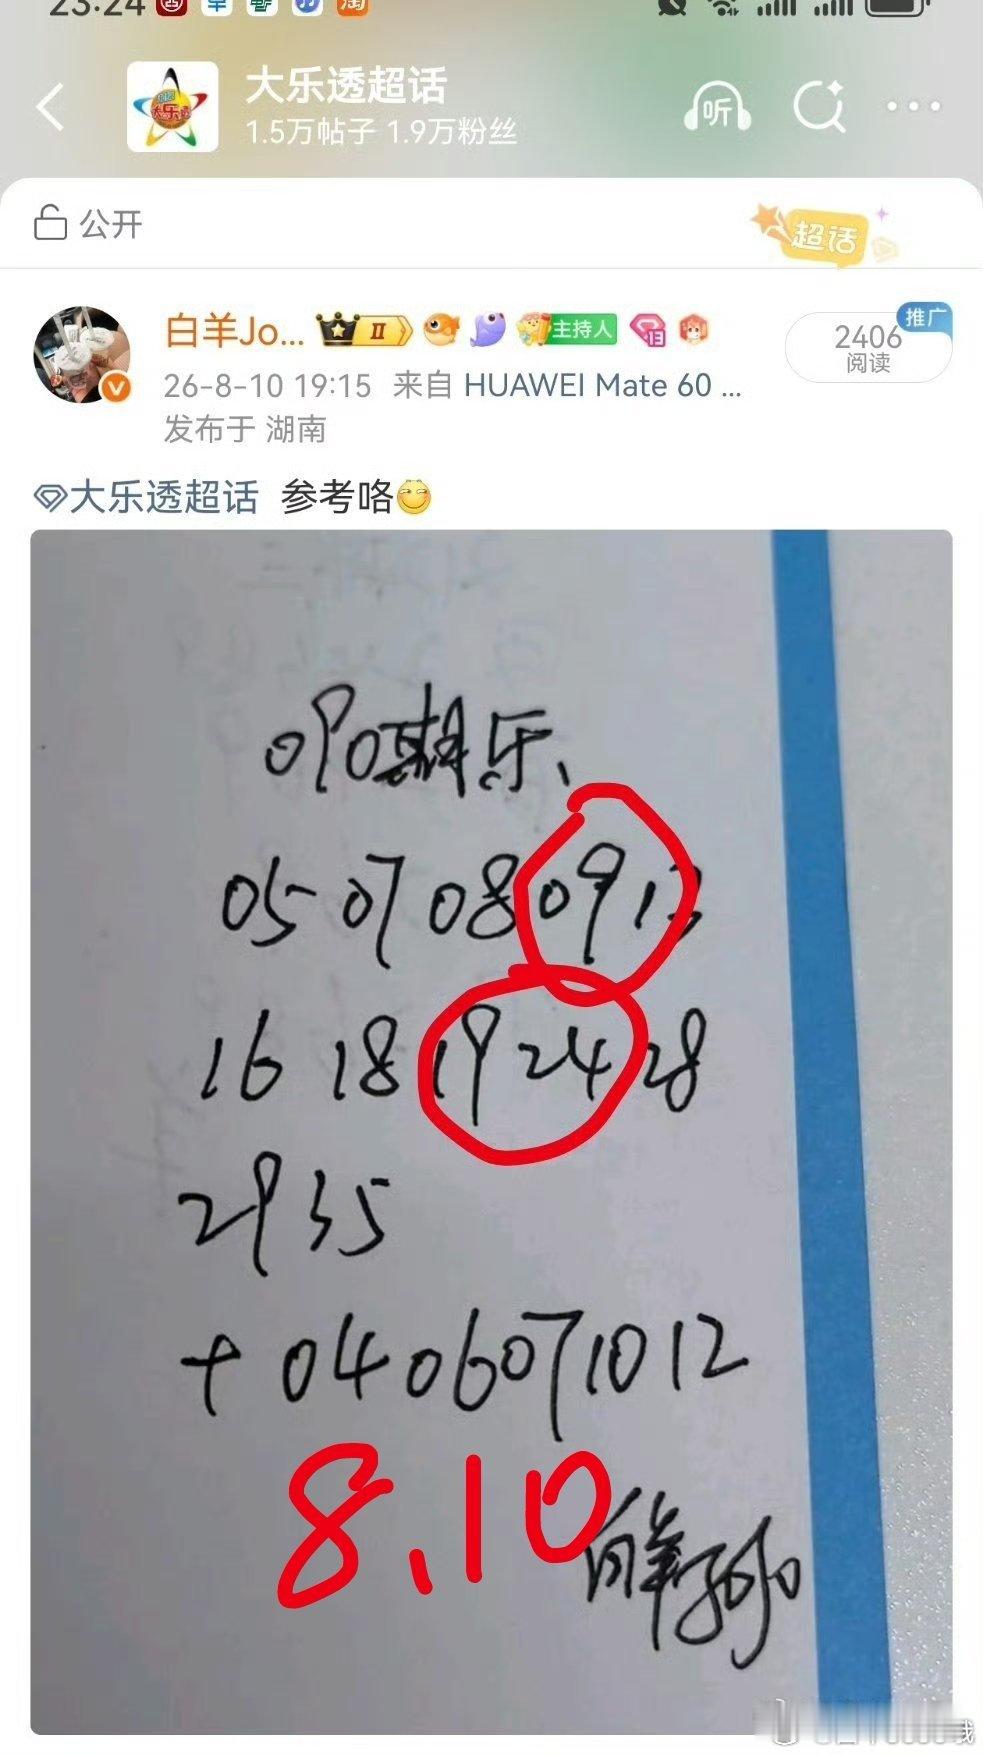 23:24
大乐透超话
听
1.5万帖子 1.9万粉丝
公开
超话
白羊Jo... II 主持人
推广
2406
阅读
26-8-10 19:15 来自 HUAWEI Mate 60 ...
发布于 湖南
大乐透超话 参考咯
090期乐、
05 07 08 09 13
16 18 19 24 28
29 35
+ 04 06 07 10 12
8.10
白羊